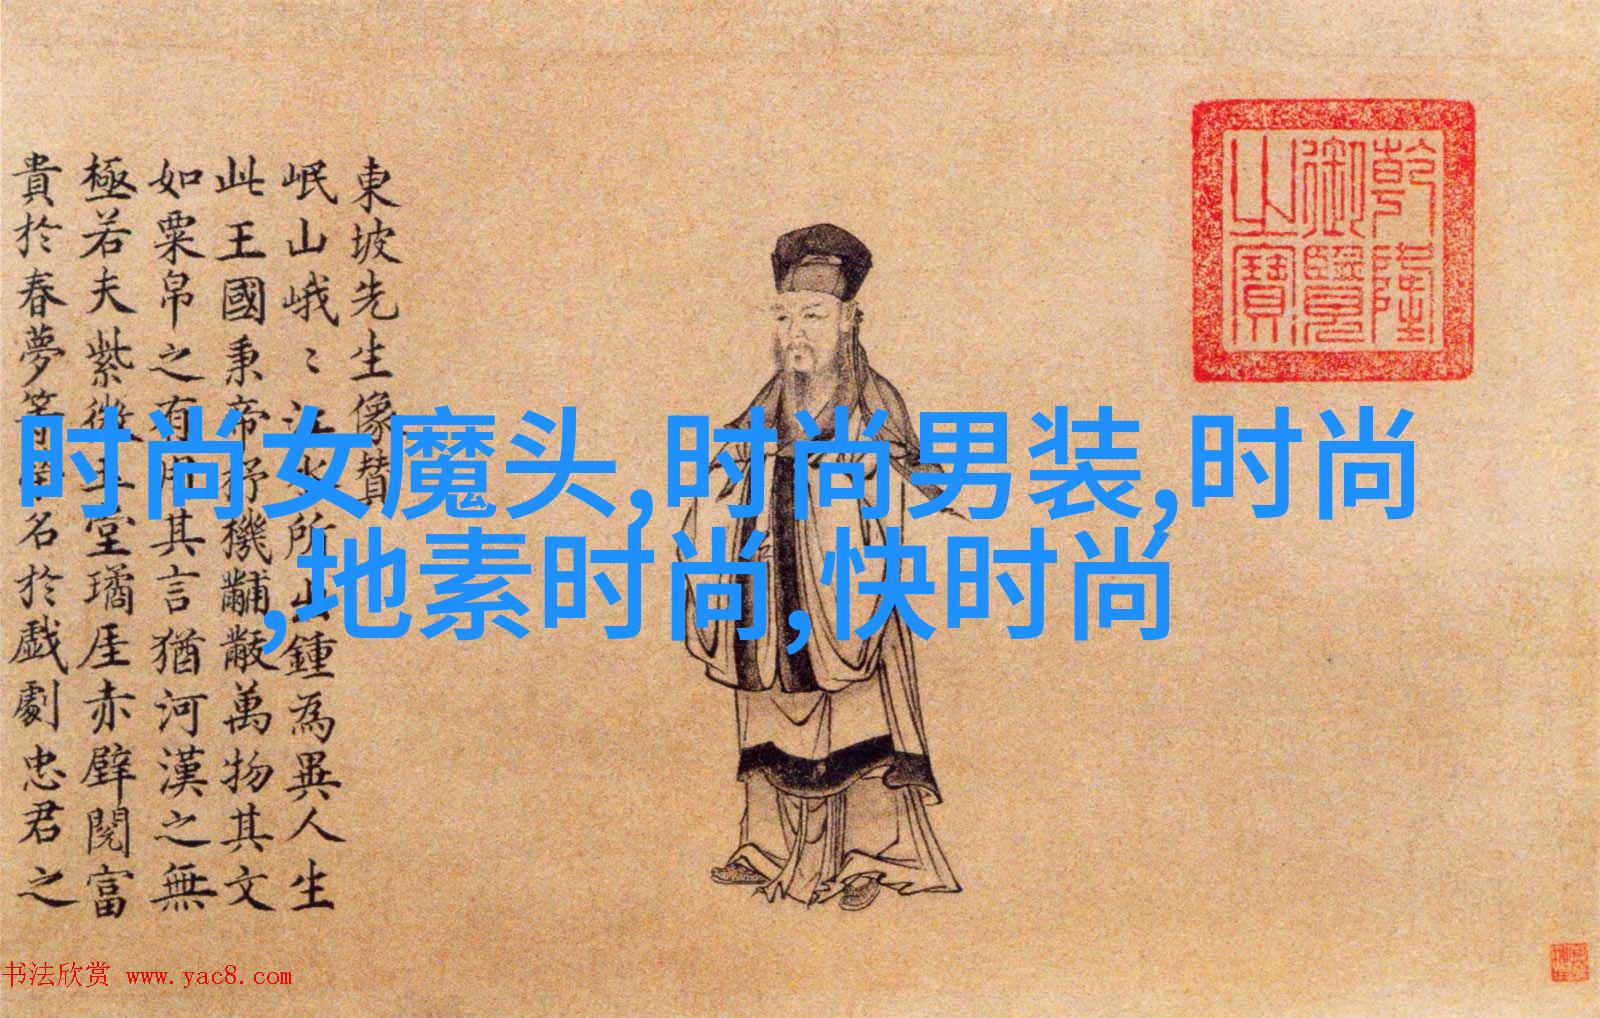 東坡先生像贊
岷山峨〻江水所山鍾為異人生
此王國秉帝杼機黼黻萬物其文
如粟帛之有用其言猶河漢之無
極若夫紫微玉堂璚厓赤壁閱富
貴於春夢等榮名於戲劇忠君之
乾隆
御覽
之寶
时尚女魔头,时尚男装,时尚
,地素时尚,快时尚
书法欣赏 www.yac8.com